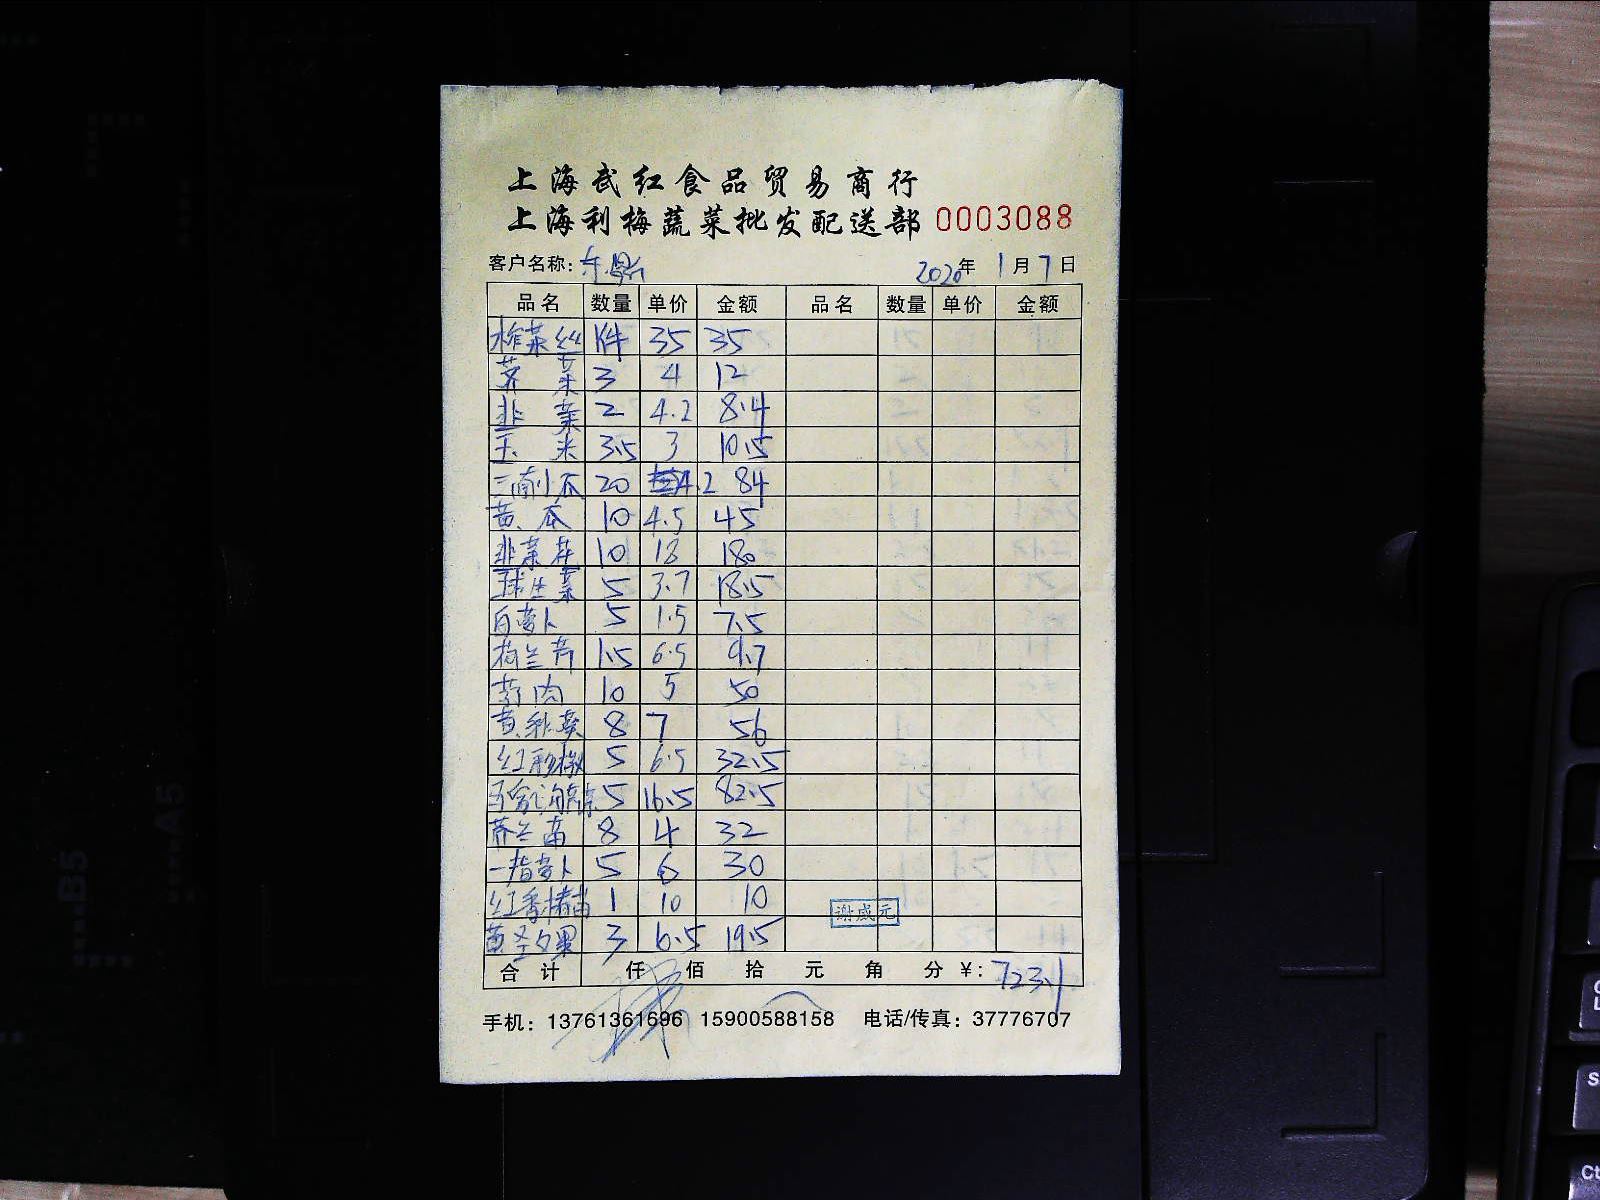 上海武红食品贸易商行
上海利梅蔬菜批发配送部 0003088
客户名称: 2020年 1月7日
品名 数量 单价 金额 品名 数量 单价 金额
榨菜丝 1件 35 35
荠菜 3 4 12
韭菜 2 4.2 8.4
玉米 3.5 3 10.5
瓜 20 4.2 84
黄瓜 10 4.5 45
韭菜花 10 18 180
球生菜 5 3.7 18.5
白萝卜 5 1.5 7.5
1.5 6.5 9.7
肉 10 5 50
黄秋葵 8 7 56
红彩椒 5 6.5 32.5
5 16.5 82.5
芥兰苗 8 4 32
一指萝卜 5 6 30
红香椿苗 1 10 10
谢成元
黄圣女果 3 6.5 19.5
合计 仟 佰 拾 元 角 分 ¥: 723.1
手机: 13761361696 15900588158 电话/传真: 37776707